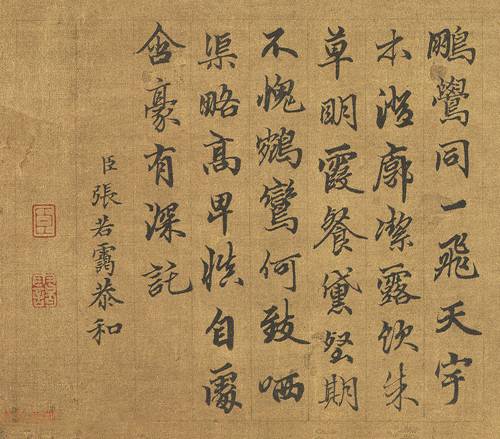 鵬鷽同一飛天宇
本澹廓潔露飲朱
草明霞餐黛壑期
不愧鵷鸞何致哂
渠略高卑慎自處
含豪有深託
臣張若靄恭和